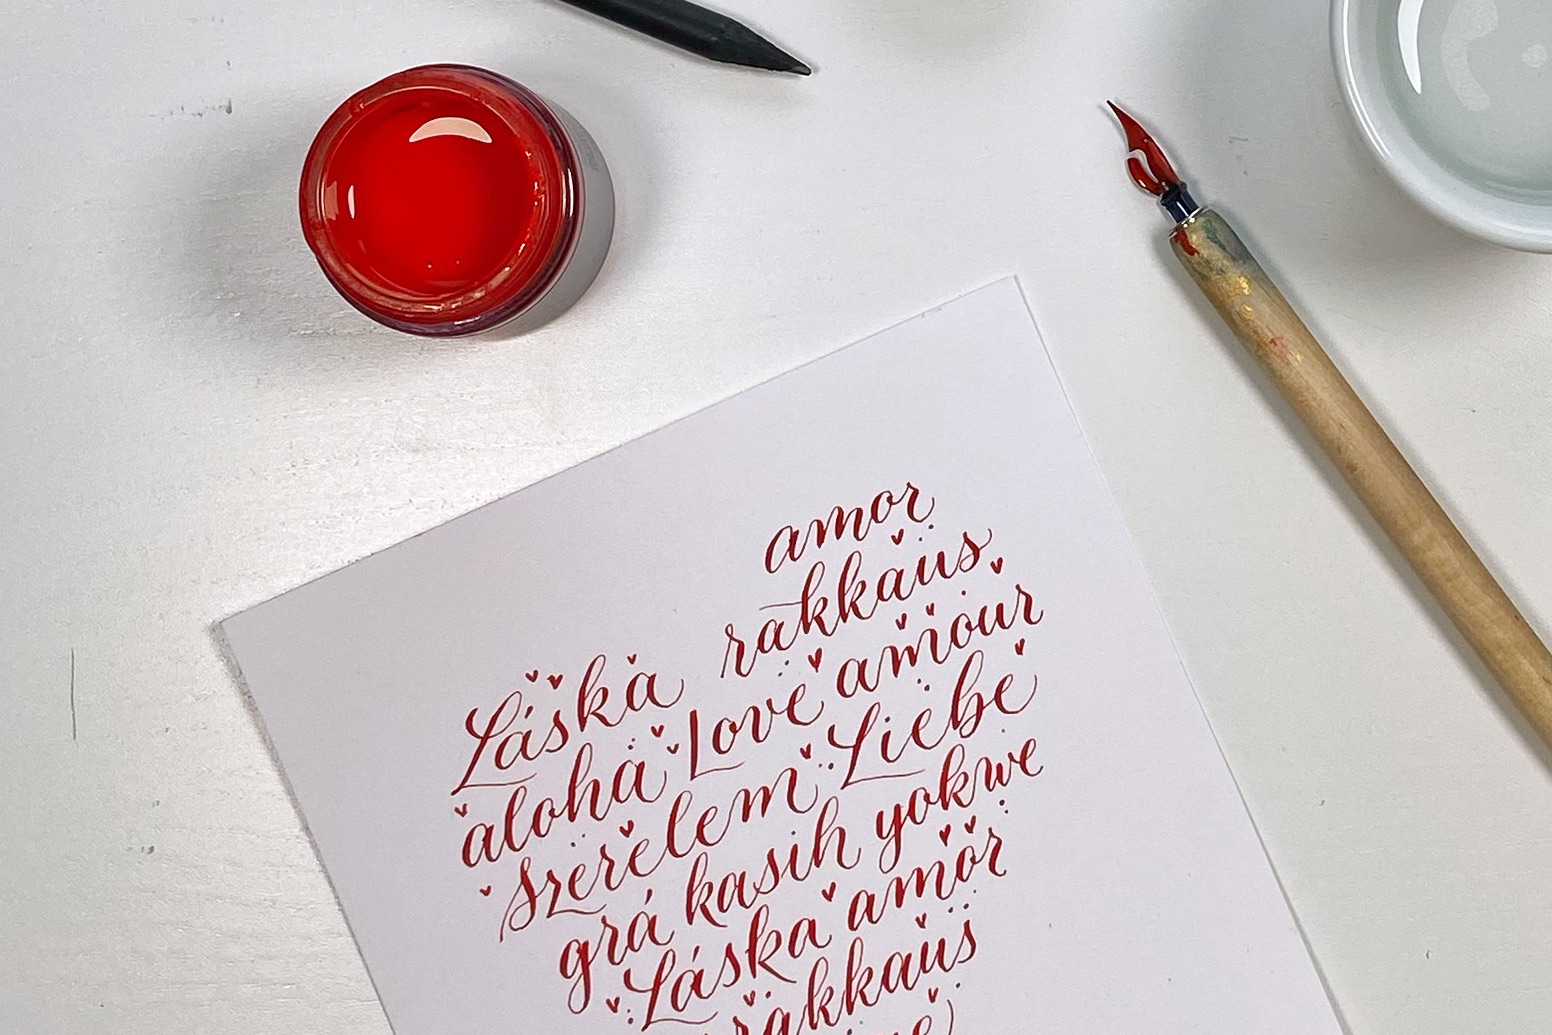 amor
Láska rakkaus
aloha Love amour
szerelem Liebe
grá kasih yokwe
Láska amor
rakkaus